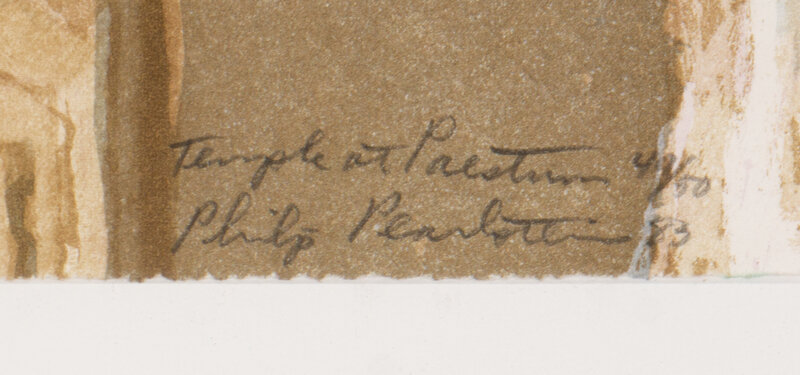 Temple at Paestum
Philip Pearlstein 83